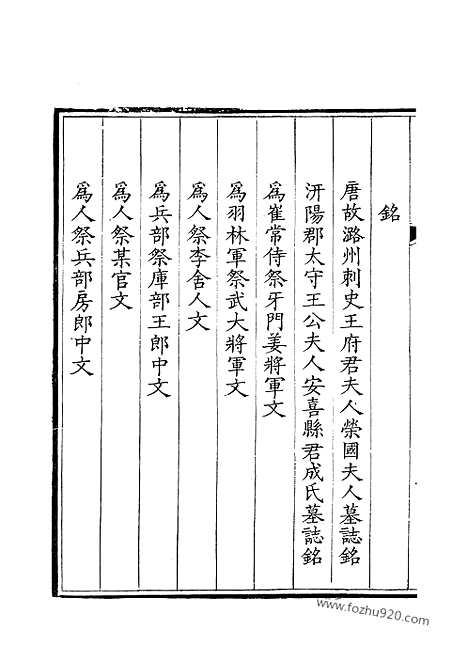 銘
唐故潞州刺史王府君夫人榮國夫人墓誌銘
汧陽郡太守王公夫人安喜縣君成氏墓誌銘
為崔常侍祭牙門姜將軍文
為羽林軍祭武大將軍文
為人祭李舍人文
為兵部祭庫部王郎中文
為人祭某官文
為人祭兵部房郎中文
www.fozhu920.com